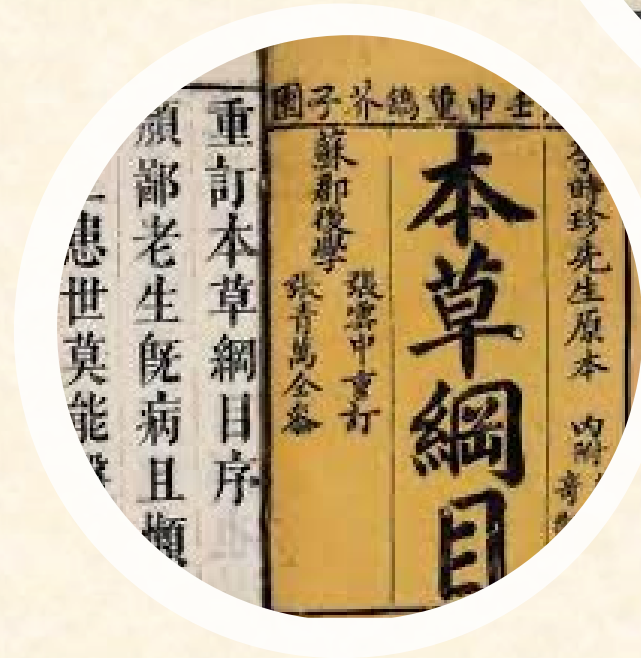 壬申重鐫芥子園
李時珍先生原本 內附
本草綱目
蘇郡後學
張雲中重訂
張青萬仝參
重訂本草綱目序
鄙老生旣病且
患世莫能